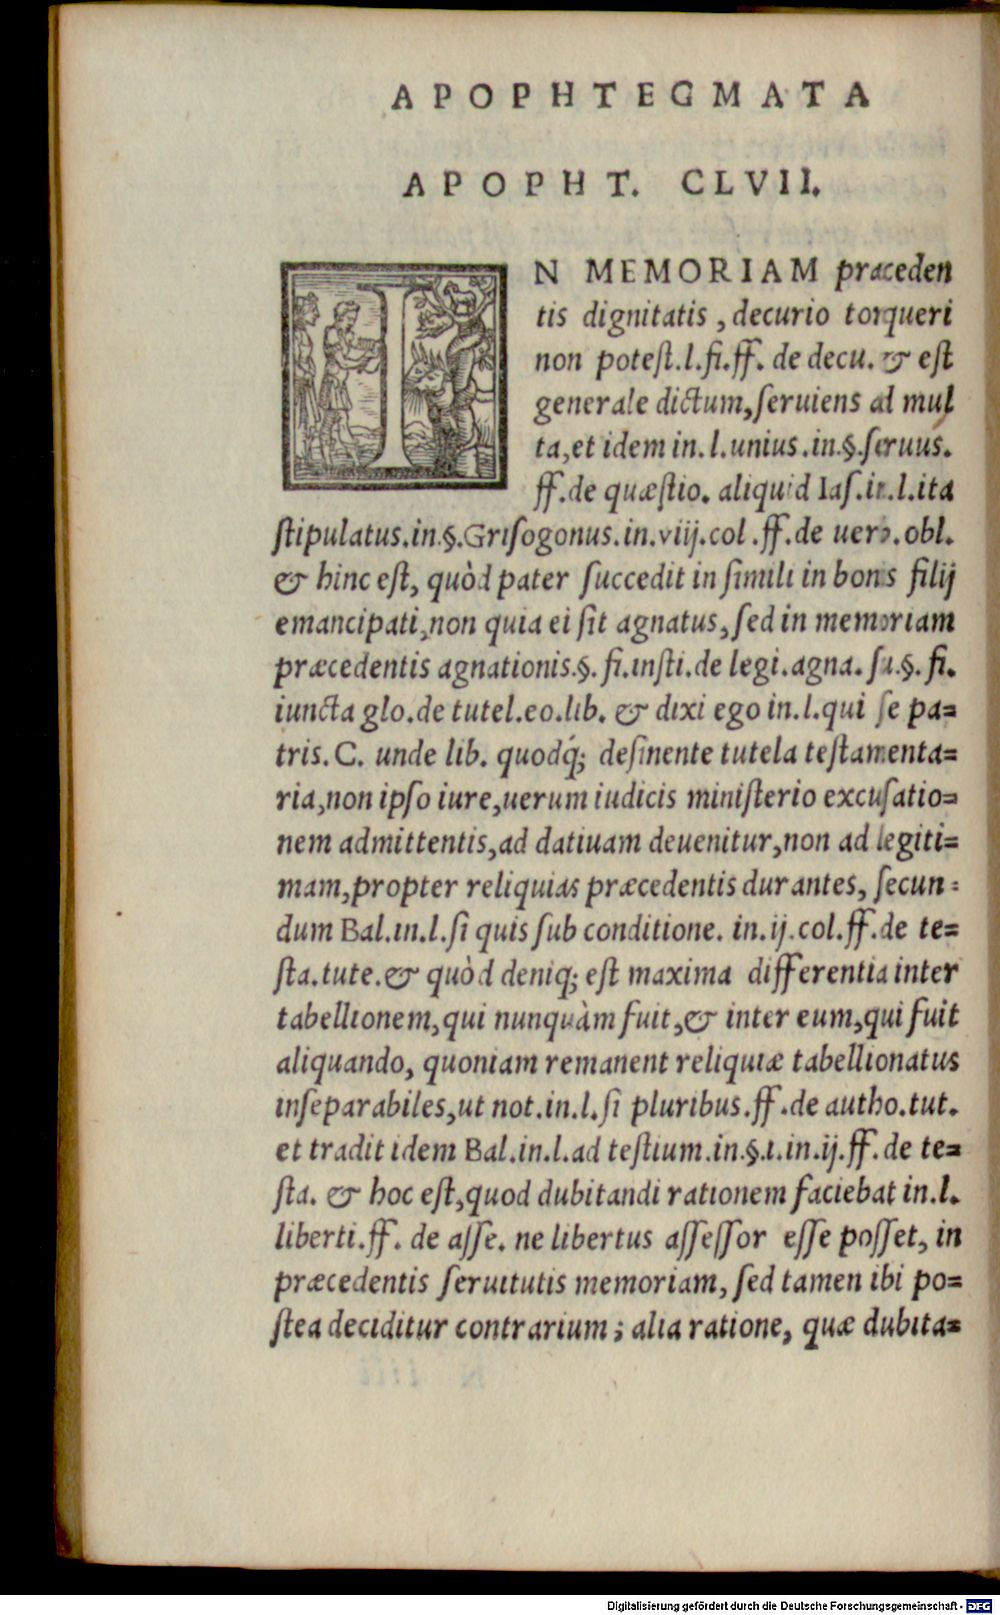 APOPHTEGMATA
APOPHT. CLVII.
IN MEMORIAM præceden
tis dignitatis, decurio torqueri
non potest.l.fi.ff. de decu. & est
generale dictum, seruiens ad mul
ta, et idem in.l.unius.in.§.seruus.
ff.de quæstio. aliquid Ias.in.l.ita
stipulatus.in.§.Grisogonus.in.viij.col.ff.de uerb.obl.
& hinc est, quòd pater succedit in simili in bonis filij
emancipati, non quia ei sit agnatus, sed in memoriam
præcedentis agnationis.§.fi.insti.de legi.agna.su.§.fi.
iuncta glo.de tutel.eo.lib. & dixi ego in.l.qui se pa=
tris.C. unde lib. quodq́; desinente tutela testamenta=
ria, non ipso iure, uerum iudicis ministerio excusatio=
nem admittentis, ad datiuam deuenitur, non ad legiti=
mam, propter reliquias præcedentis durantes, secun=
dum Bal.in.l.si quis sub conditione. in.ij.col.ff.de te=
sta.tute.& quòd deniq; est maxima differentia inter
tabellionem, qui nunquàm fuit, & inter eum, qui fuit
aliquando, quoniam remanent reliquiæ tabellionatus
inseparabiles, ut not.in.l.si pluribus.ff.de autho.tut.
et tradit idem Bal.in.l.ad testium.in.§.1.in.ij.ff.de te=
sta. & hoc est, quod dubitandi rationem faciebat in.l.
liberti.ff. de asse. ne libertus assessor esse posset, in
præcedentis seruitutis memoriam, sed tamen ibi po=
stea deciditur contrarium; alia ratione, quæ dubita=
Digitalisierung gefördert durch die Deutsche Forschungsgemeinschaft - DFG